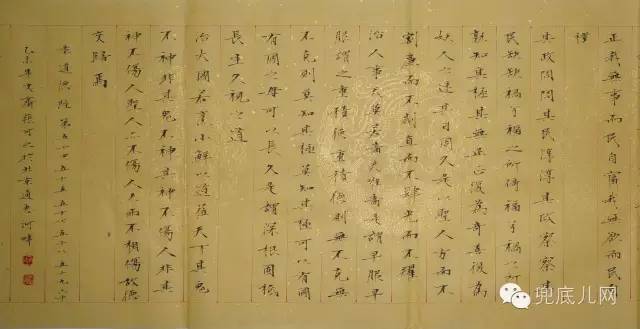 正我無事而民自富我無欲而民自
樸
其政悶悶其民淳淳其政察察其
民缺缺禍兮福之所倚福兮禍之所
孰知其極其無正正復為奇善復為
妖人之迷其日固久是以聖人方而不
割廉而不劌直而不肆光而不耀
治人事天莫若嗇夫唯嗇是謂早服早
服謂之重積德重積德則無不克無
不克則莫知其極莫知其極可以有國
有國之母可以長久是謂深根固柢
長生久視之道
治大國若烹小鮮以道蒞天下其鬼
不神非其鬼不神其神不傷人非其
神不傷人聖人亦不傷人夫兩不相傷故德
交歸焉
道德經 第五十四五十五五十七五十八五十九六十
乙未年 於北京通州河畔
兜底儿网